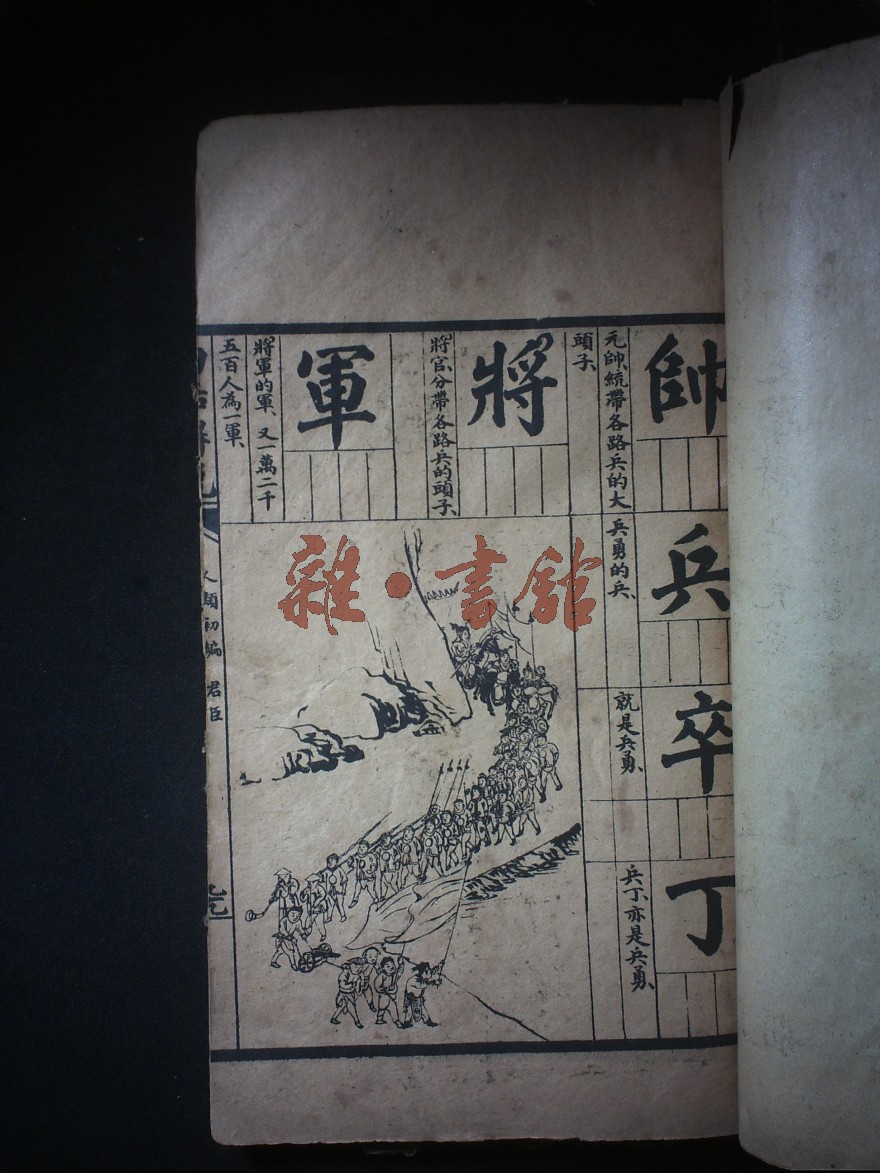 帥
元帥、統帶各路兵的大
頭子、
將
將官、分帶各路兵的頭子、
軍
將軍的軍、又一萬二千
五百人為一軍、
兵
兵勇的兵、
卒
就是兵勇、
丁
兵丁、亦是兵勇、
人類初編 君臣
雜·書館